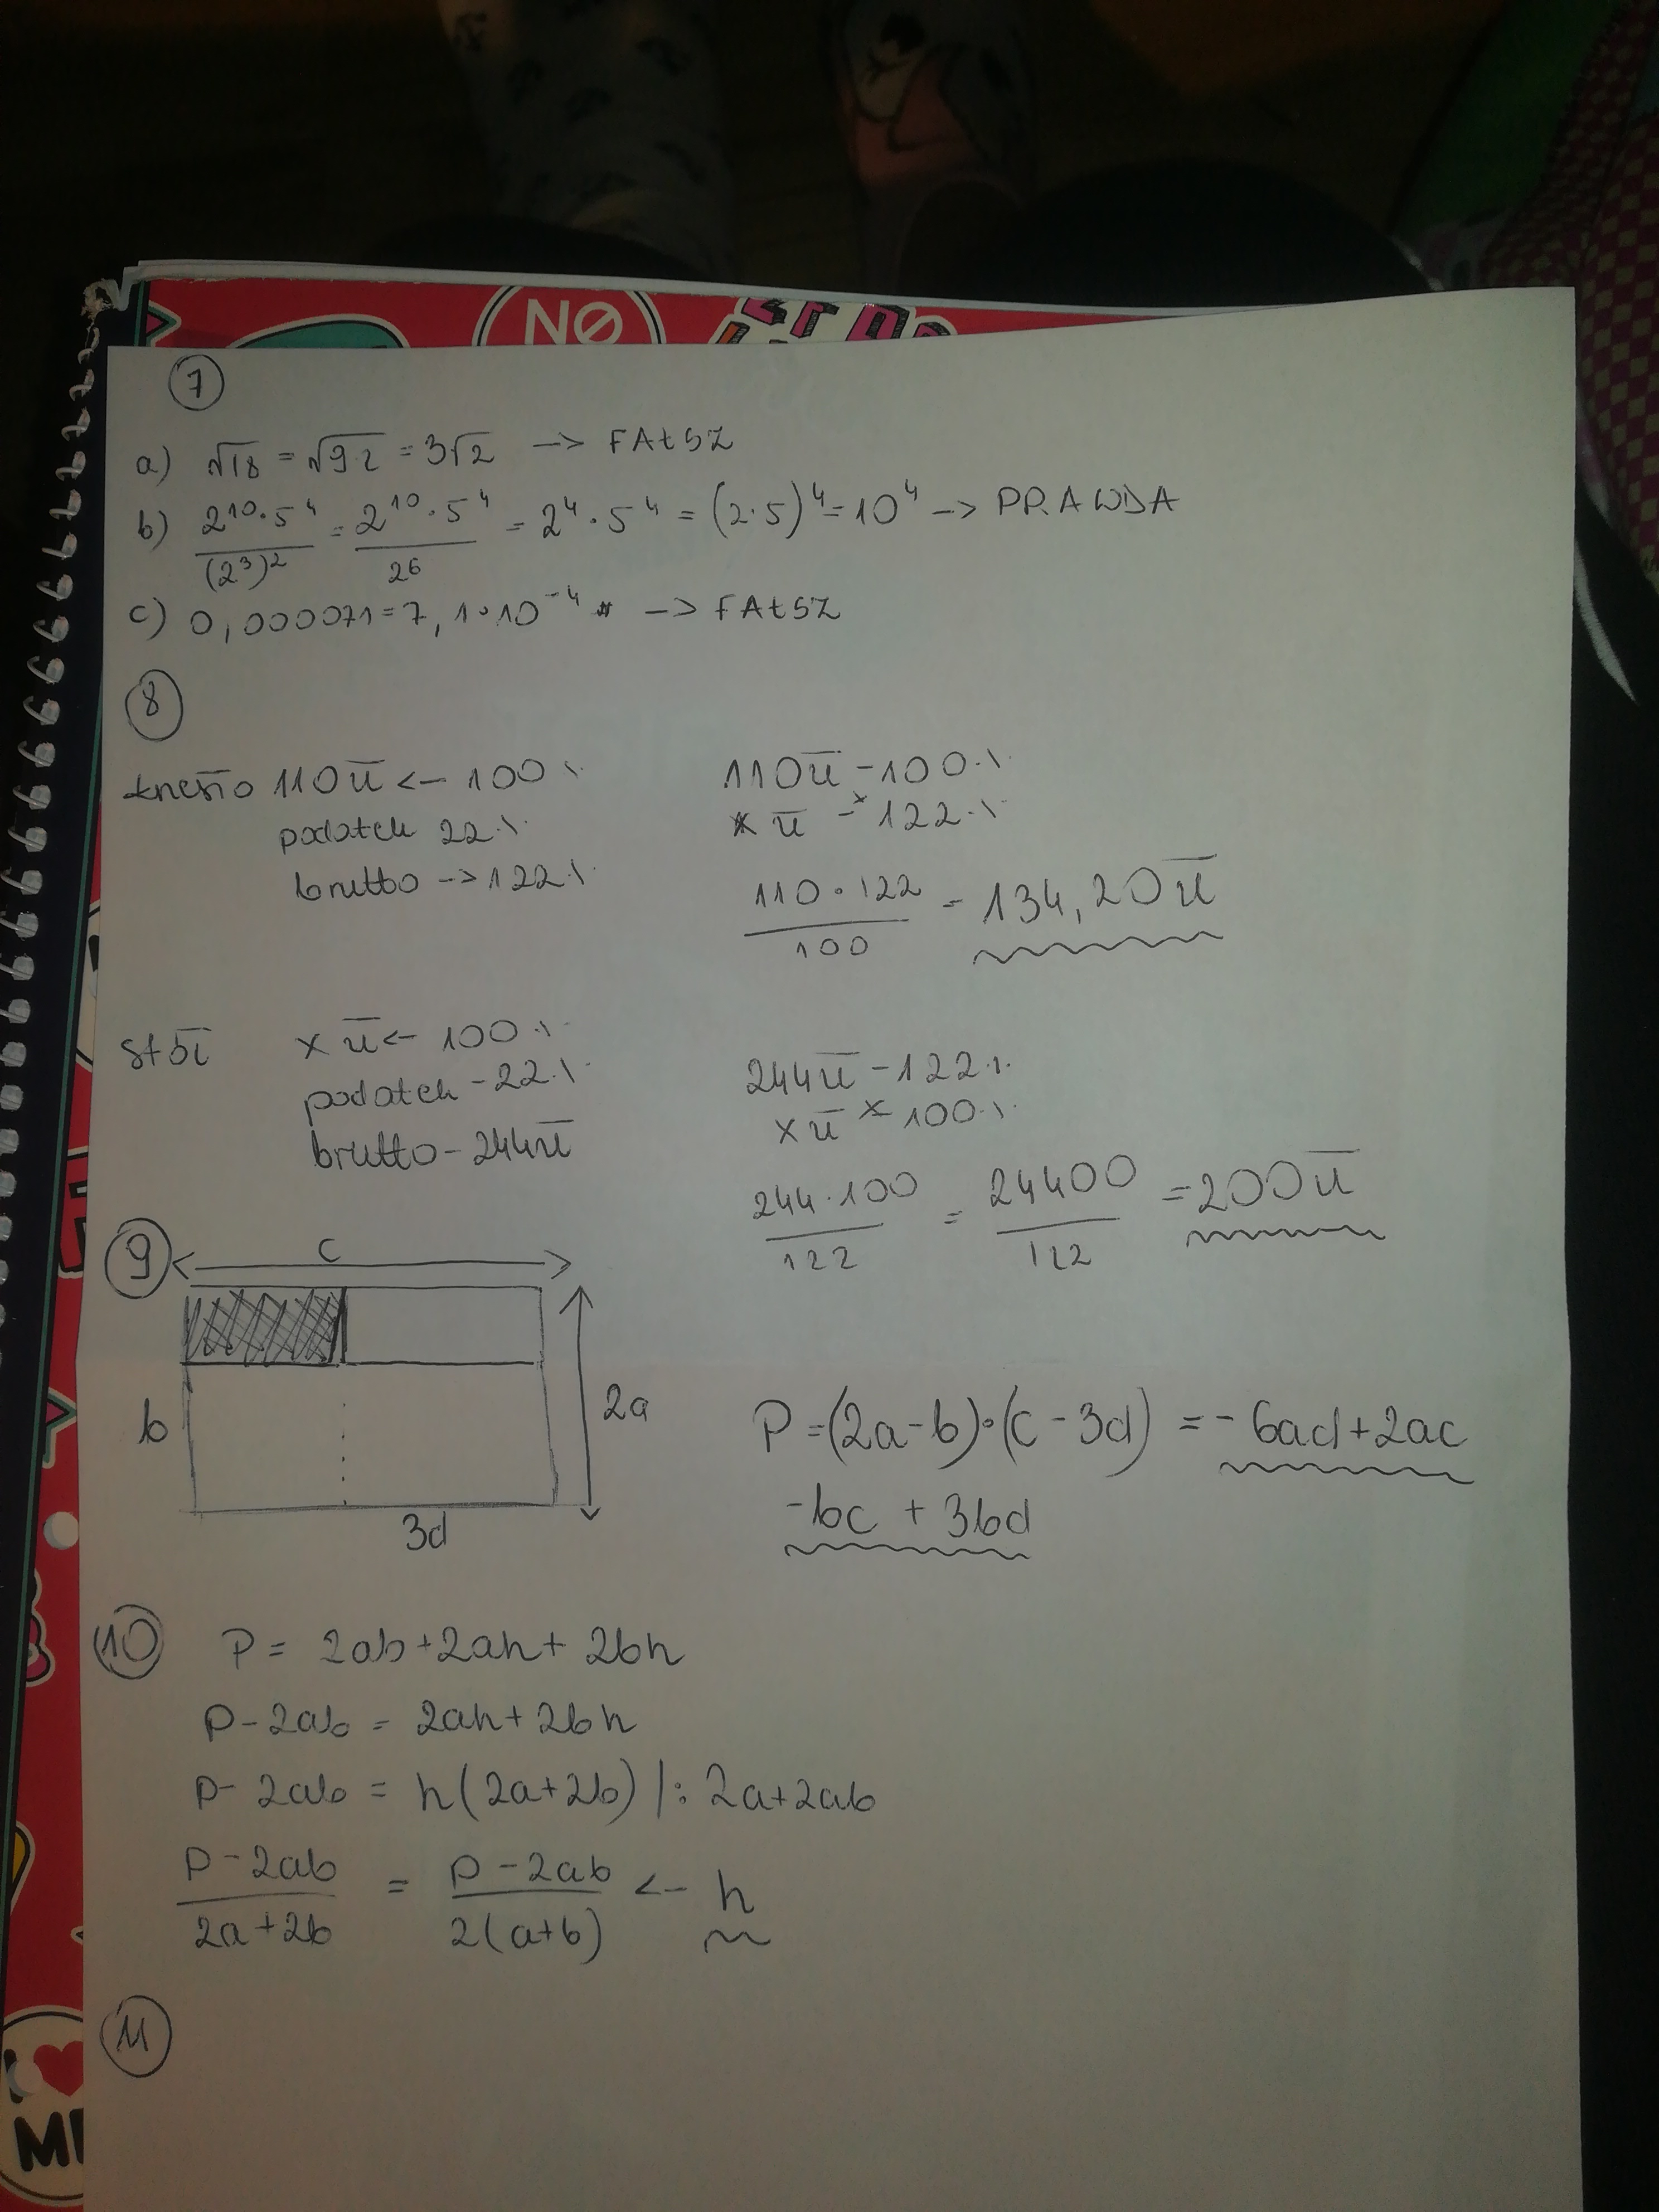 NO
7
a) √18 = √9·2 = 3√2 -> FAŁSZ
b) 2^10·5^4/(2^3)^2 = 2^10·5^4/2^6 = 2^4·5^4 = (2·5)^4 = 10^4 -> PRAWDA
c) 0,000071=7,1·10^-4 -> FAŁSZ
8
110zł <- 100%
podatek 22%
brutto -> 122%
110zł - 100%
x zł - 122%
110·122/100 = 134,20zł
stół x zł <- 100%
podatek - 22%
brutto - 244zł
244zł - 122%
x zł - 100%
244·100/122 = 24400/122 = 200zł
9
c
b
2a
3d
P=(2a-b)·(c-3d) = -6ad+2ac
-bc + 3bd
10 P= 2ab+2ah+2bh
P-2ab = 2ah+2bh
P-2ab = h(2a+2b) |: 2a+2ab
P-2ab/2a+2b = P-2ab/2(a+b) <- h
11